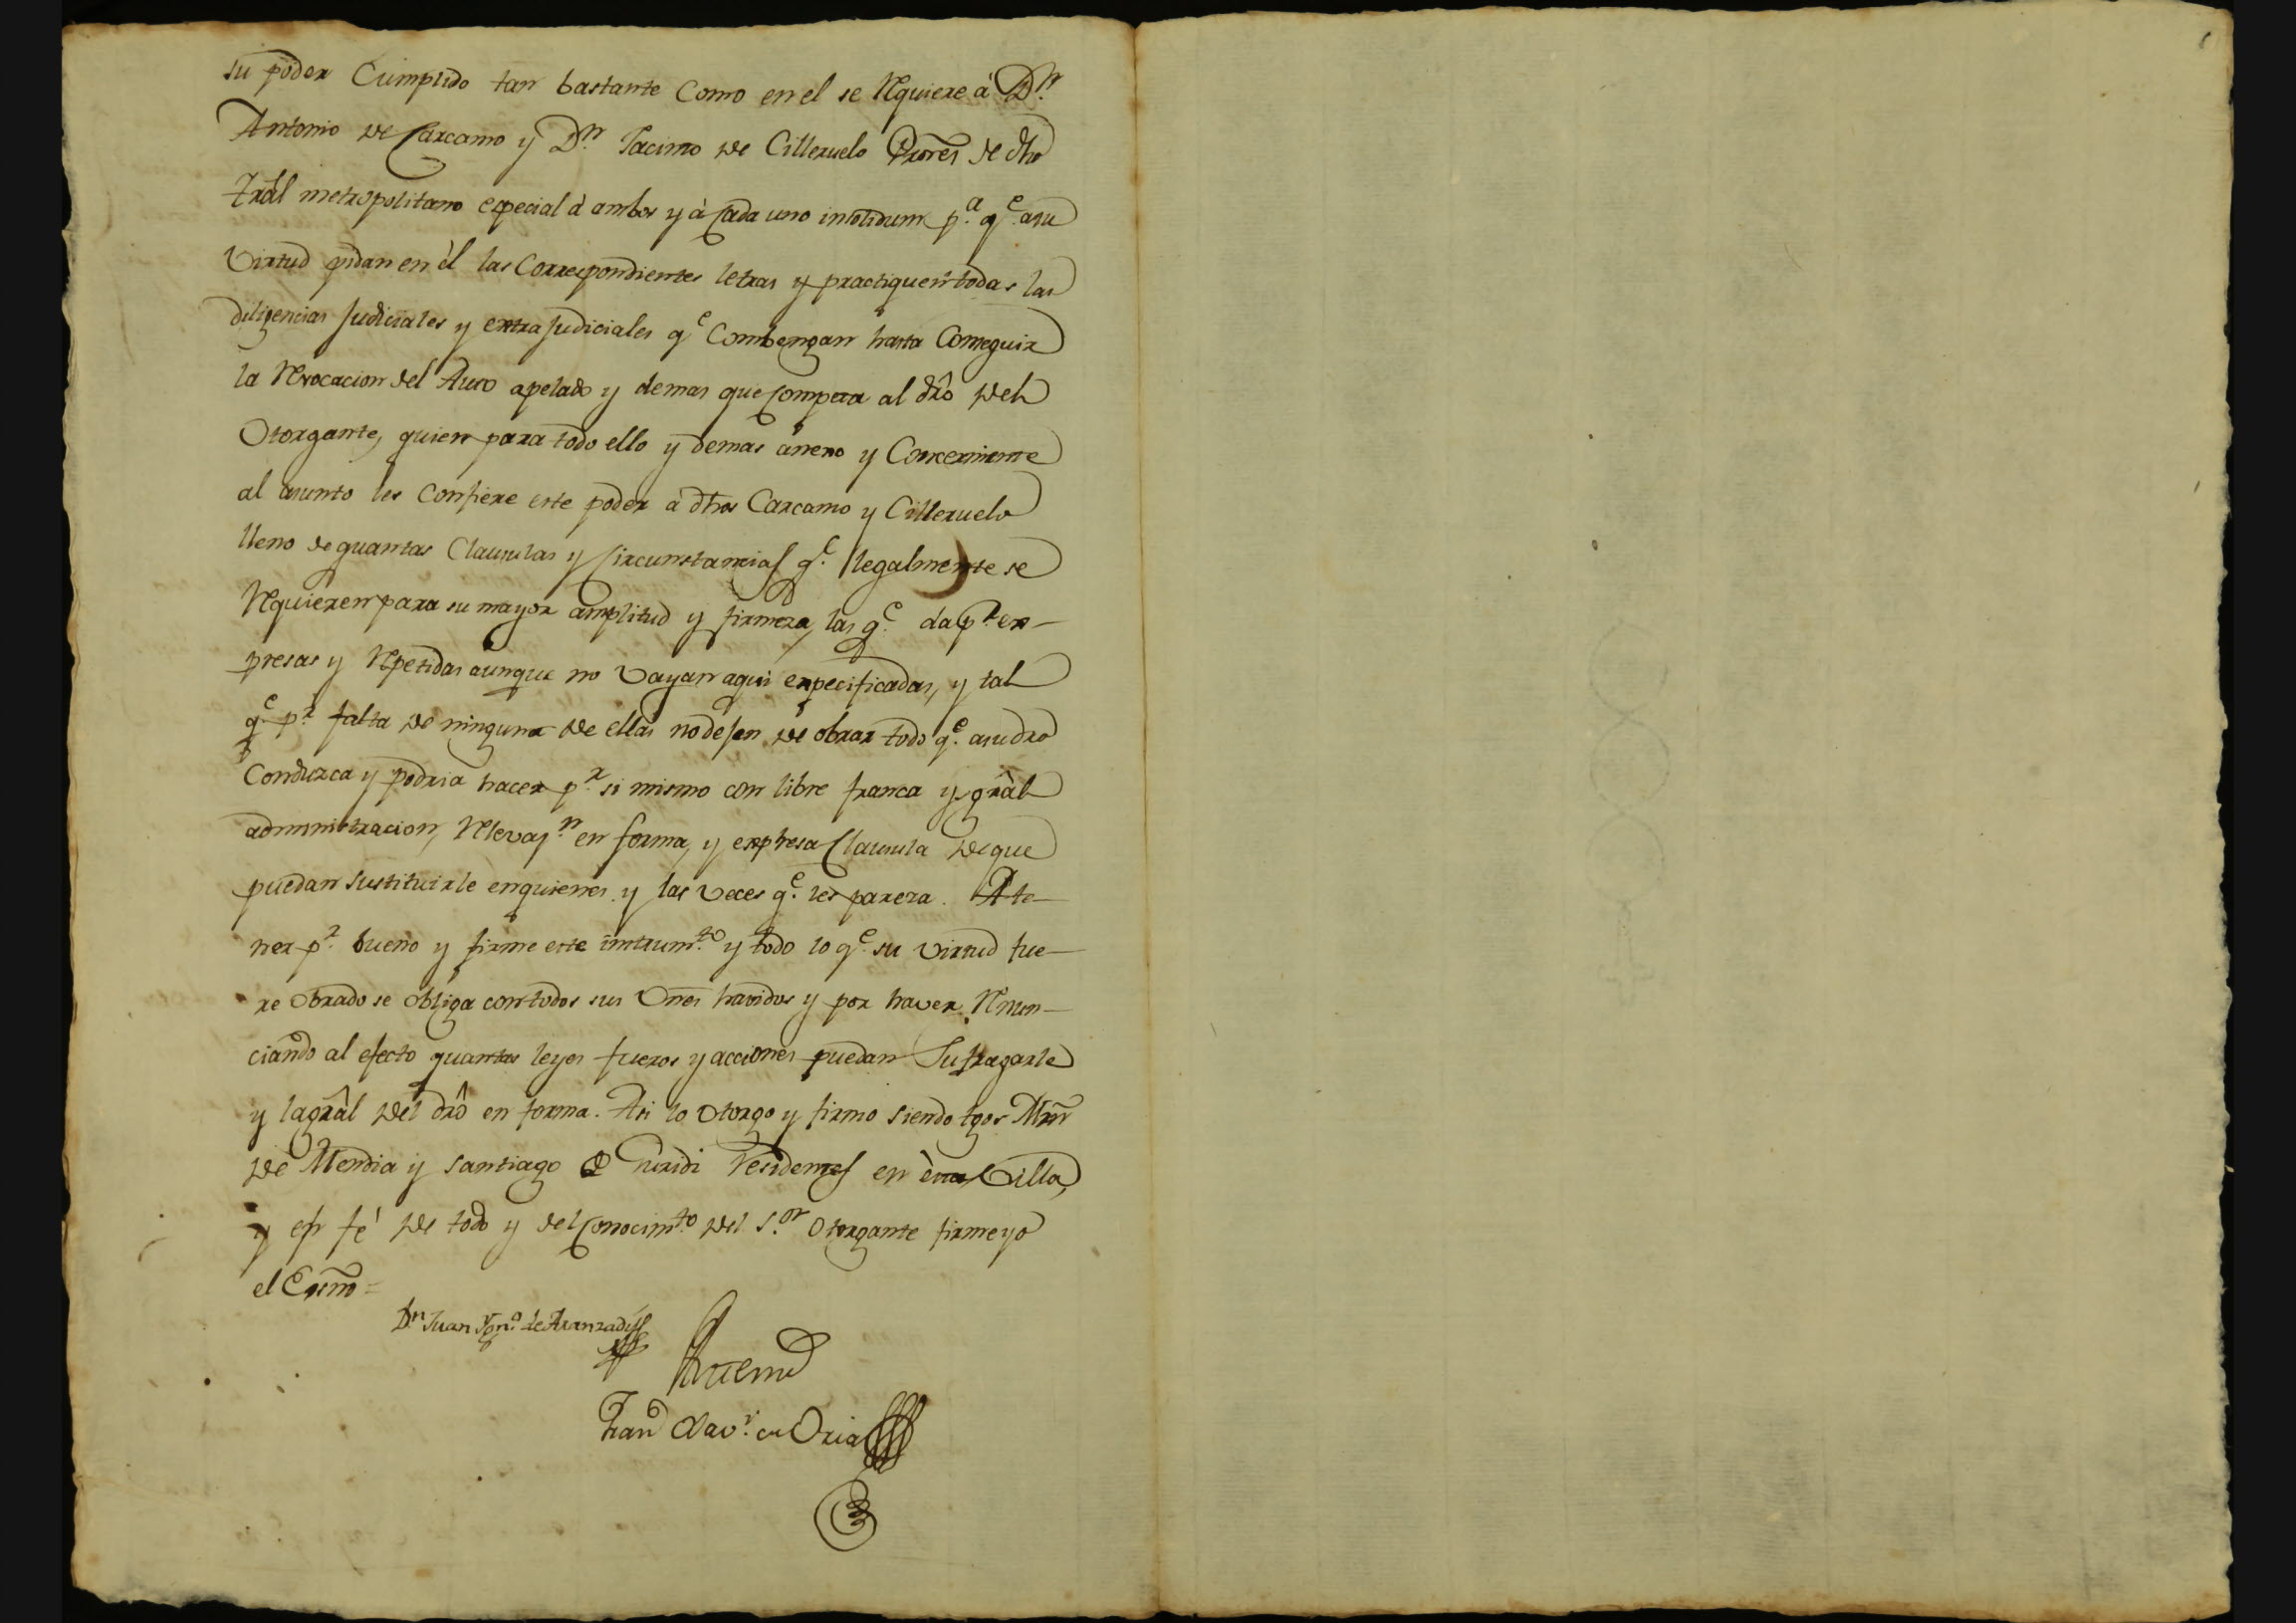 su poder Cumplido tan bastante como en el se Requiere à Dn.
Antonio de Carcamo y Dn. Jacinto de Cilleruelo Prores de dho
Tral metropolitano especial à ambos y à cada uno insolidum pa. qe. a su
Virtud pidan en èl las Correspondientes letras y practiquen todas las
diligencias Judiciales y extrajudiciales qe Combengan hasta Conseguir
la Revocacion del Auto apelado y demas que competa al dro del
Otorgante, quien para todo ello y demas anexo y Concerniente
al asunto les Confiere este poder a dhos Carcamo y Cilleruelo
lleno de quantas Clausulas y circunstancias qe. legalmente se
Requieren para su mayor amplitud y firmeza, las qe. da pr. ex-
presas y Repetidas aunque no Vayan aqui expecificadas, y tal
qe. pr. falta de ninguna de ellas no dejen de obrar todo qe. a su dro
Conduzca y podria hacer pr. si mismo con libre franca y gràl
administracion, Relevazn. en forma, y expresa Clausula de que
puedan sustituirle en quienes y las Veces qe. les pareza. A te-
ner pr. bueno y firme este instrumto. y todo lo qe. su virtud fue-
re obrado se obliga con todos sus Vnes havidos y por haver. Renun-
ciando al efecto quantas leyes fueros y acciones puedan Sufragarle
y la gràl del drô en forma. Asi lo otorgo y firmo siendo tgos Mrn
de Mendia y Santiago de residentes en esta Villa,
y en fé de todo y del conocimto. del Sor. Otorgante firme yo
el Essno =
Dn Juan Ygno. de Aranzadi
Ante mi
Franco Xavr. de Oria